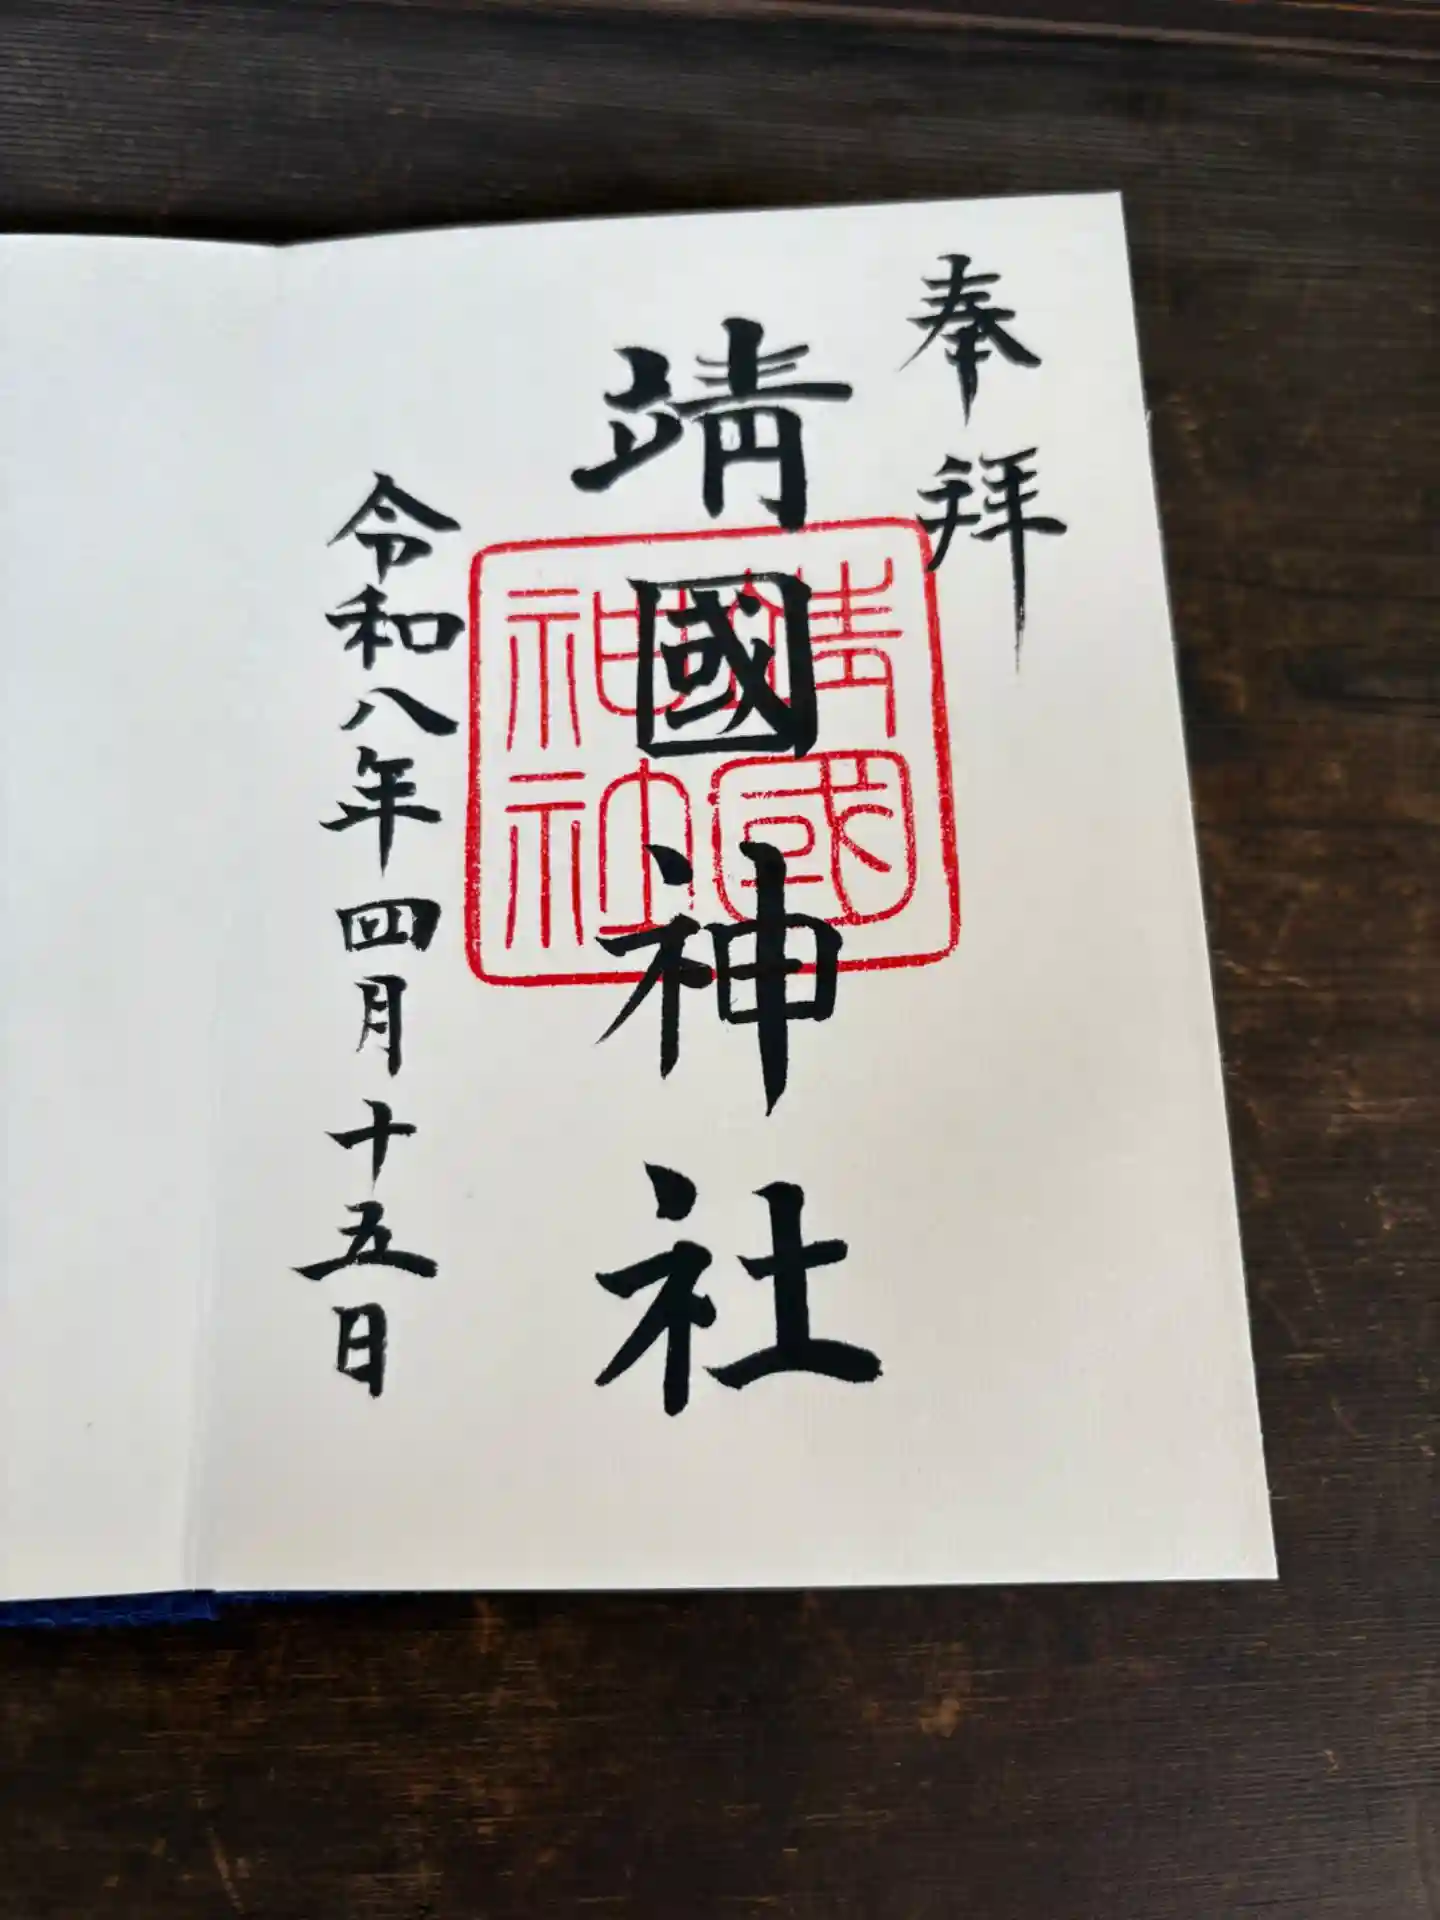 奉拜
靖國神社
靖國神社
令和八年四月十五日